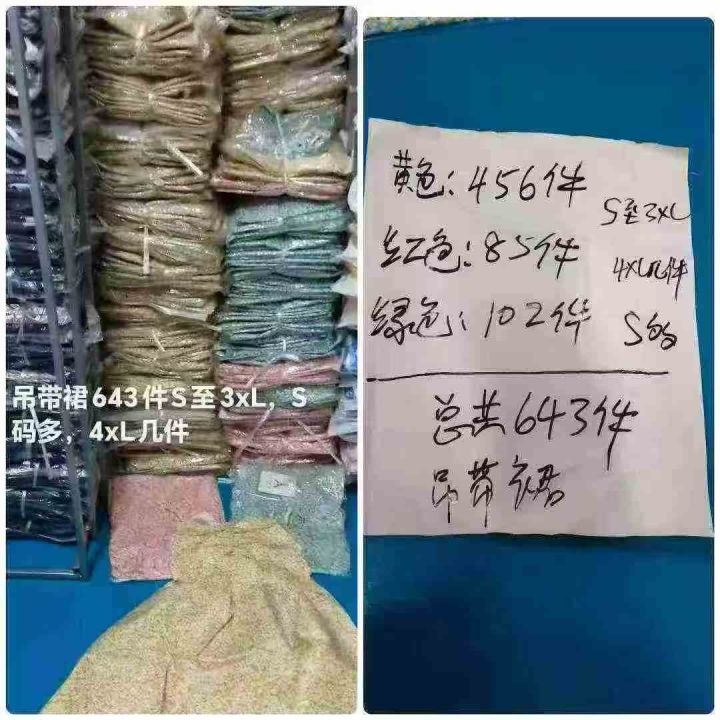 吊带裙643件S至3xL，S
码多，4xL几件
黄色：456件
S至3XL
红色：85件
4XL几件
绿色：102件
S多
总共643件
吊带裙